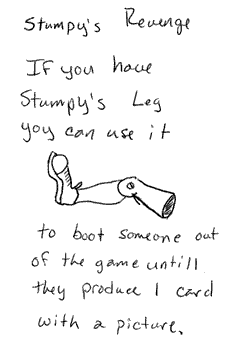 Stumpy's Revenge
If you have
Stumpy's Leg
yoy can use it
to boot someone out
of the game untill
they produce 1 card
with a picture.